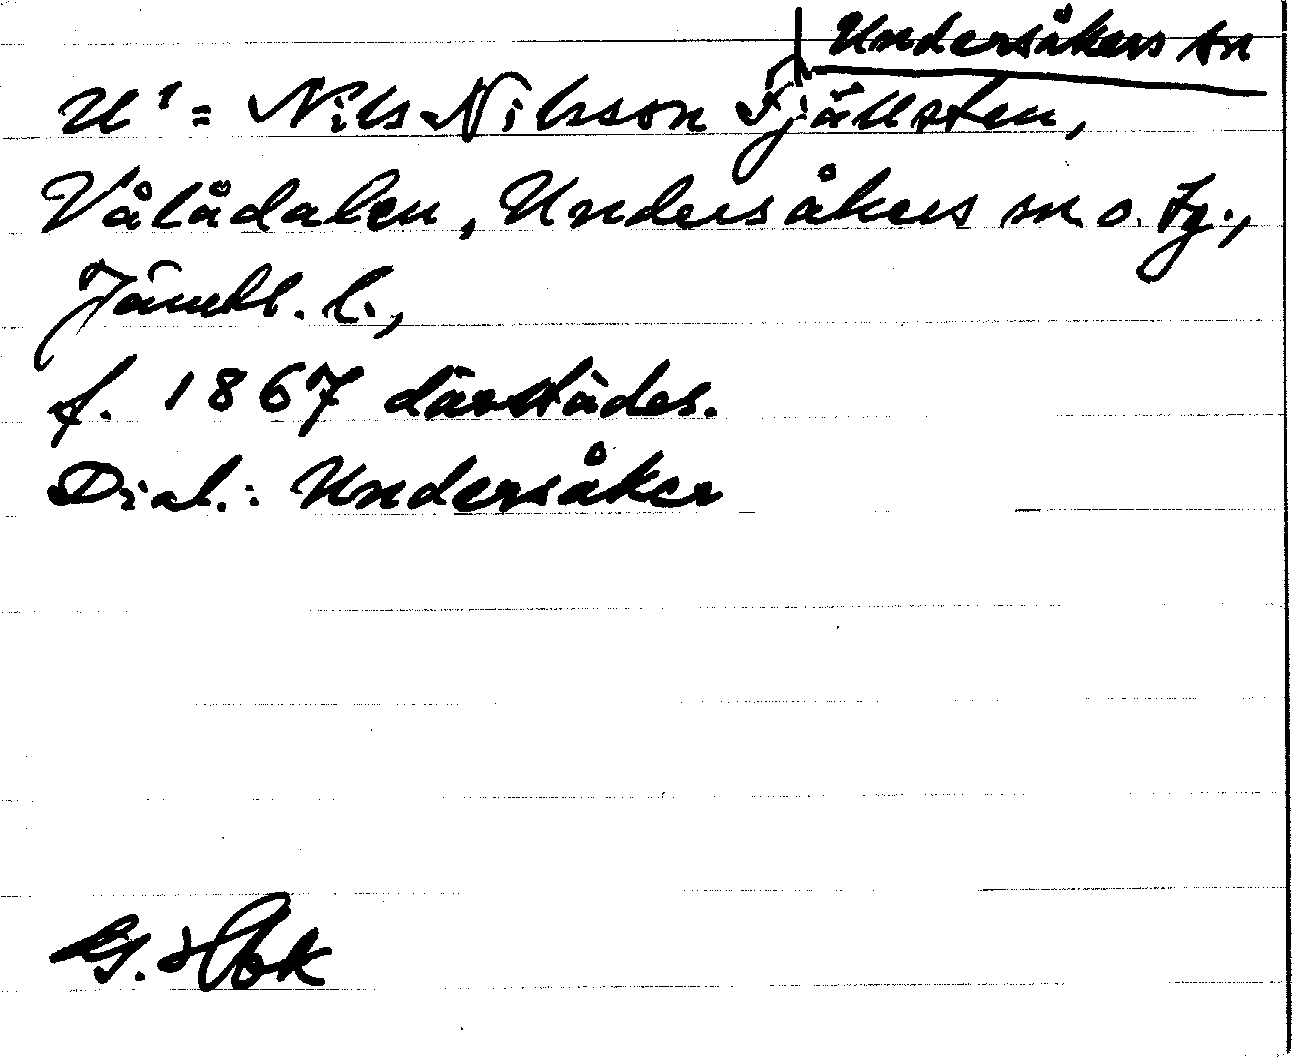 Undersåkers sn
U¹ = Nils Nilsson Fjällsten,
Vålådalen, Undersåkers sn o. tg.,
Jämtl. l.,
f. 1867 därstädes.
Dial.: Undersåker
G.